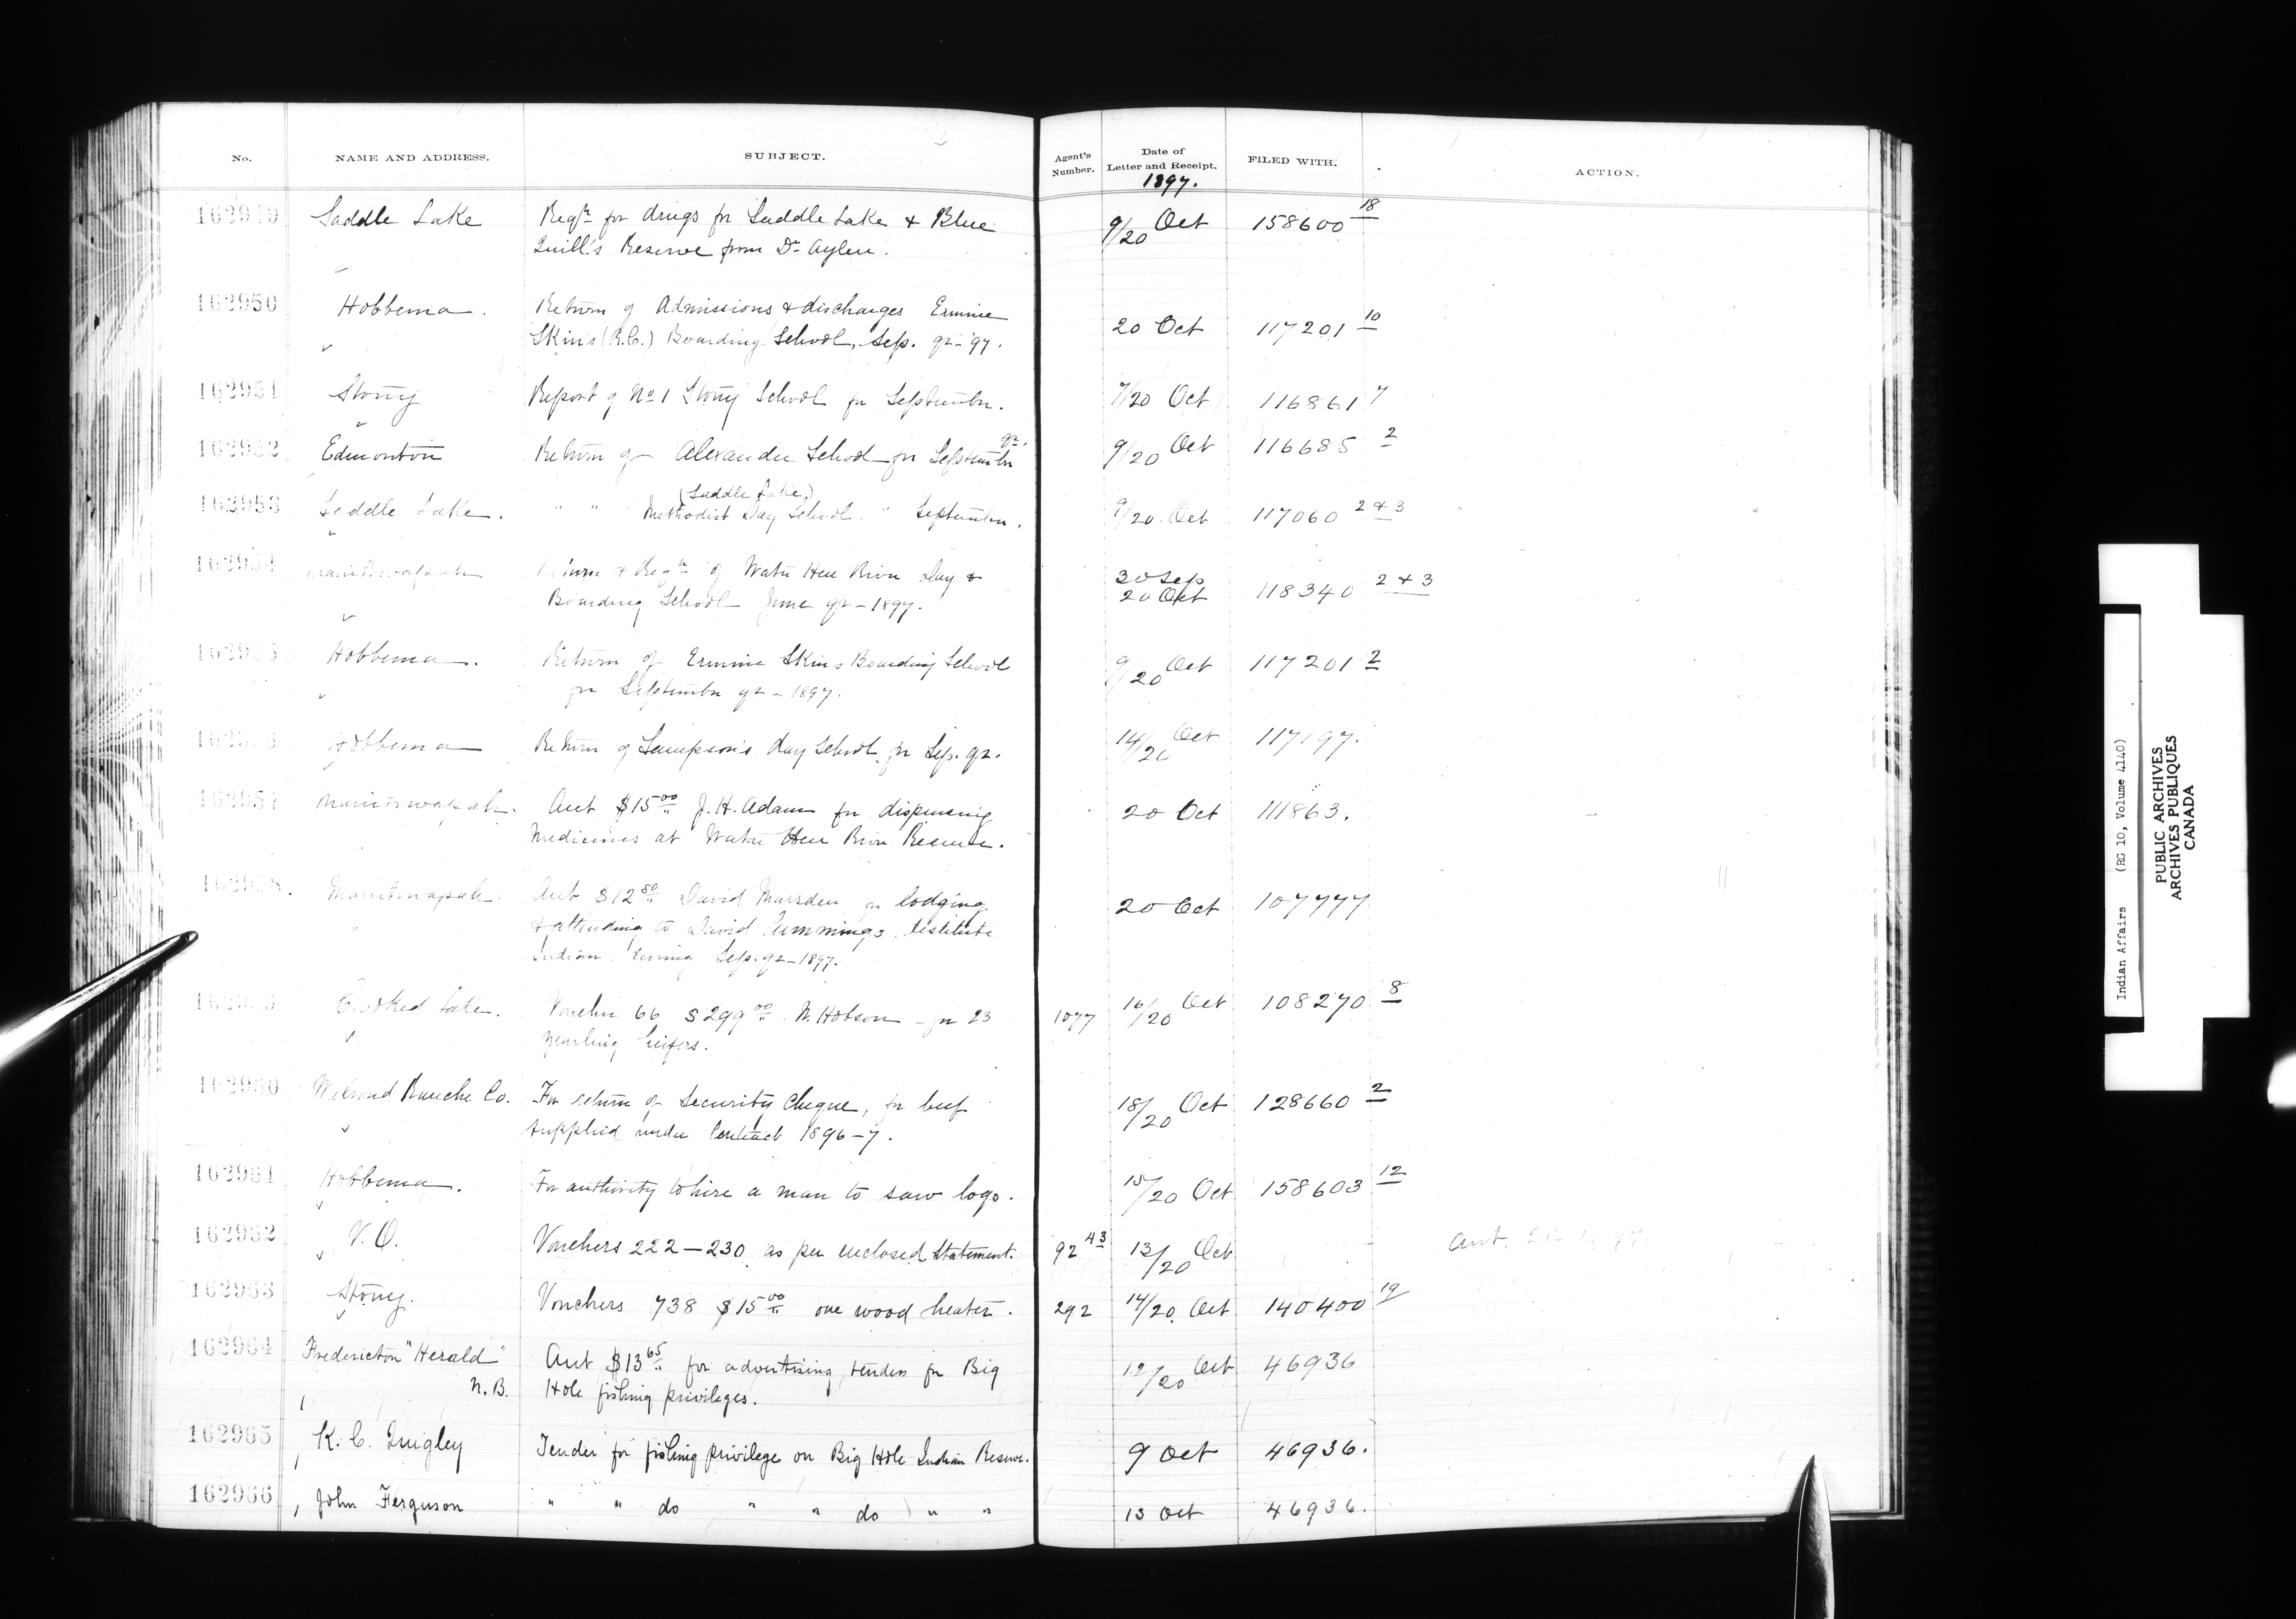 No. NAME AND ADDRESS. SUBJECT. Agent's Number. Date of Letter and Receipt. FILED WITH. ACTION.
1897.
162949 Saddle Lake Reqn for drugs for Saddle Lake & Blue 9/20 Oct 158600 18
Quill's Reserve from Dr Aylen.
162950 Hobbema. Return of Admissions & discharges Ermine 20 Oct 117201 10
Skins (R.C.) Boarding School, Sep. qr - 97.
162951 Stony Report of No 1 Stony School for September. 7/20 Oct 116861 7
162952 Edmonton Return of Alexander School for September qr. 9/20 Oct 116685 2
162953 Saddle Lake. " " (Saddle Lake) Methodist Day School " September. 9/20 Oct 117060 2 & 3
162954 Manitowapah Return & Regr of Water Hen River Day & 30 Sep 118340 2 & 3
Boarding School June qr - 1897. 20 Oct
162955 Hobbema. Return of Ermine Skins Boarding School 9/20 Oct 117201 2
for September qr - 1897.
162956 Hobbema Return of Sampson's Day School for Sep. qr. 14/20 Oct 117197.
162957 Manitowapah. Acct $15 00 J. H. Adam for dispensing 20 Oct 111863.
Medicines at Water Hen River Reserve.
162958. Manitowapah. Acct $12 50 David Marsden for lodging 20 Oct 107777
& attending to David Cummings destitute
Indian during Sep. qr - 1897.
162959 Crooked Lake. Voucher 66 $299 00 N. Hobson - for 23 1077 16/20 Oct 108270 8
yearling heifers.
162960 Walrond Ranche Co. For return of Security Cheque, for beef 18/20 Oct 128660 2
supplied under Contract 1896-7.
162961 Hobbema. For authority to hire a man to saw logs. 15/20 Oct 158603 12
162962 V. O. Vouchers 222 - 230 as per enclosed Statement. 92 43 13/20 Oct
162963 Stony. Vouchers 738 $15 00 one wood heater. 292 14/20 Oct 140400 19
162964 Fredericton "Herald" Acct $13 65 for advertising tenders for Big 12/20 Oct 46936
N.B. Hole fishing privileges.
162965 K. C. Quigley Tender for fishing privilege on Big Hole Indian Reserve. 9 Oct 46936.
162966 John Ferguson " " do " " do " " 13 Oct 46936.
Indian Affairs (RG 10, Volume 4140)
PUBLIC ARCHIVES
ARCHIVES PUBLIQUES
CANADA